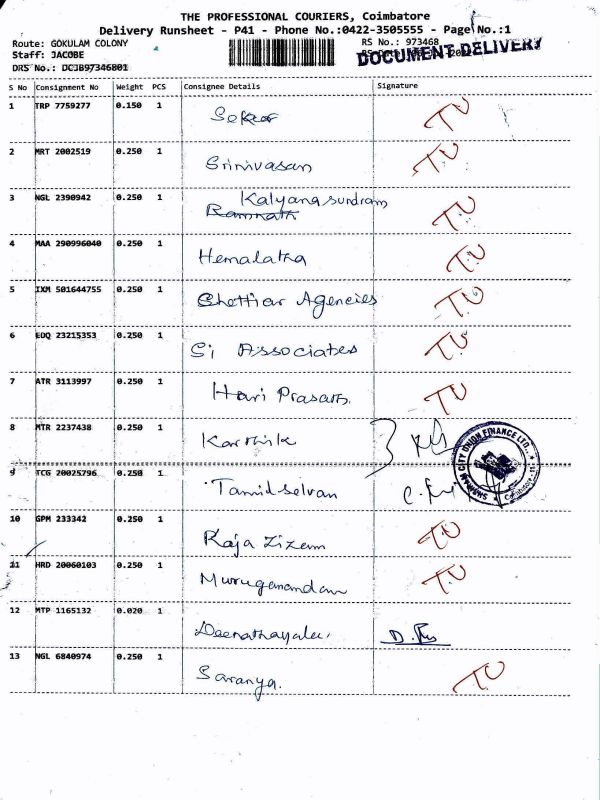 THE PROFESSIONAL COURIERS, Coimbatore
Delivery Runsheet - P41 - Phone No.:0422-3505555 - Page No.:1
Route: GOKULAM COLONY RS No.: 973468
Staff: JACOBE DOCUMENT DELIVERY
DRS No.: DCJB97346801
S No Consignment No Weight PCS Consignee Details Signature
1 TRP 7759277 0.150 1 Sekar T.U
2 MRT 2002519 0.250 1 Srinivasan T.U
3 NGL 2390942 0.250 1 Kalyana sundram T.U
Ramnath
4 MAA 290996040 0.250 1 Hemalatha T.U
5 IXM 501644755 0.250 1 Chettiar Agencies T.U
6 EDQ 23215353 0.250 1 Si Associates T.U
7 ATR 3113997 0.250 1 Hari Prasath. T.U
8 MTR 2237438 0.250 1 Karthik
CITY UNION FINANCE LTD.,
9 TCG 20025796 0.250 1 Tamilselvan
10 GPM 233342 0.250 1 Raja T.U
11 HRD 20060103 0.250 1 Muruganandam T.U
12 MTP 1165132 0.020 1 Deenathayalan
13 NGL 6840974 0.250 1 Saranya. T.U